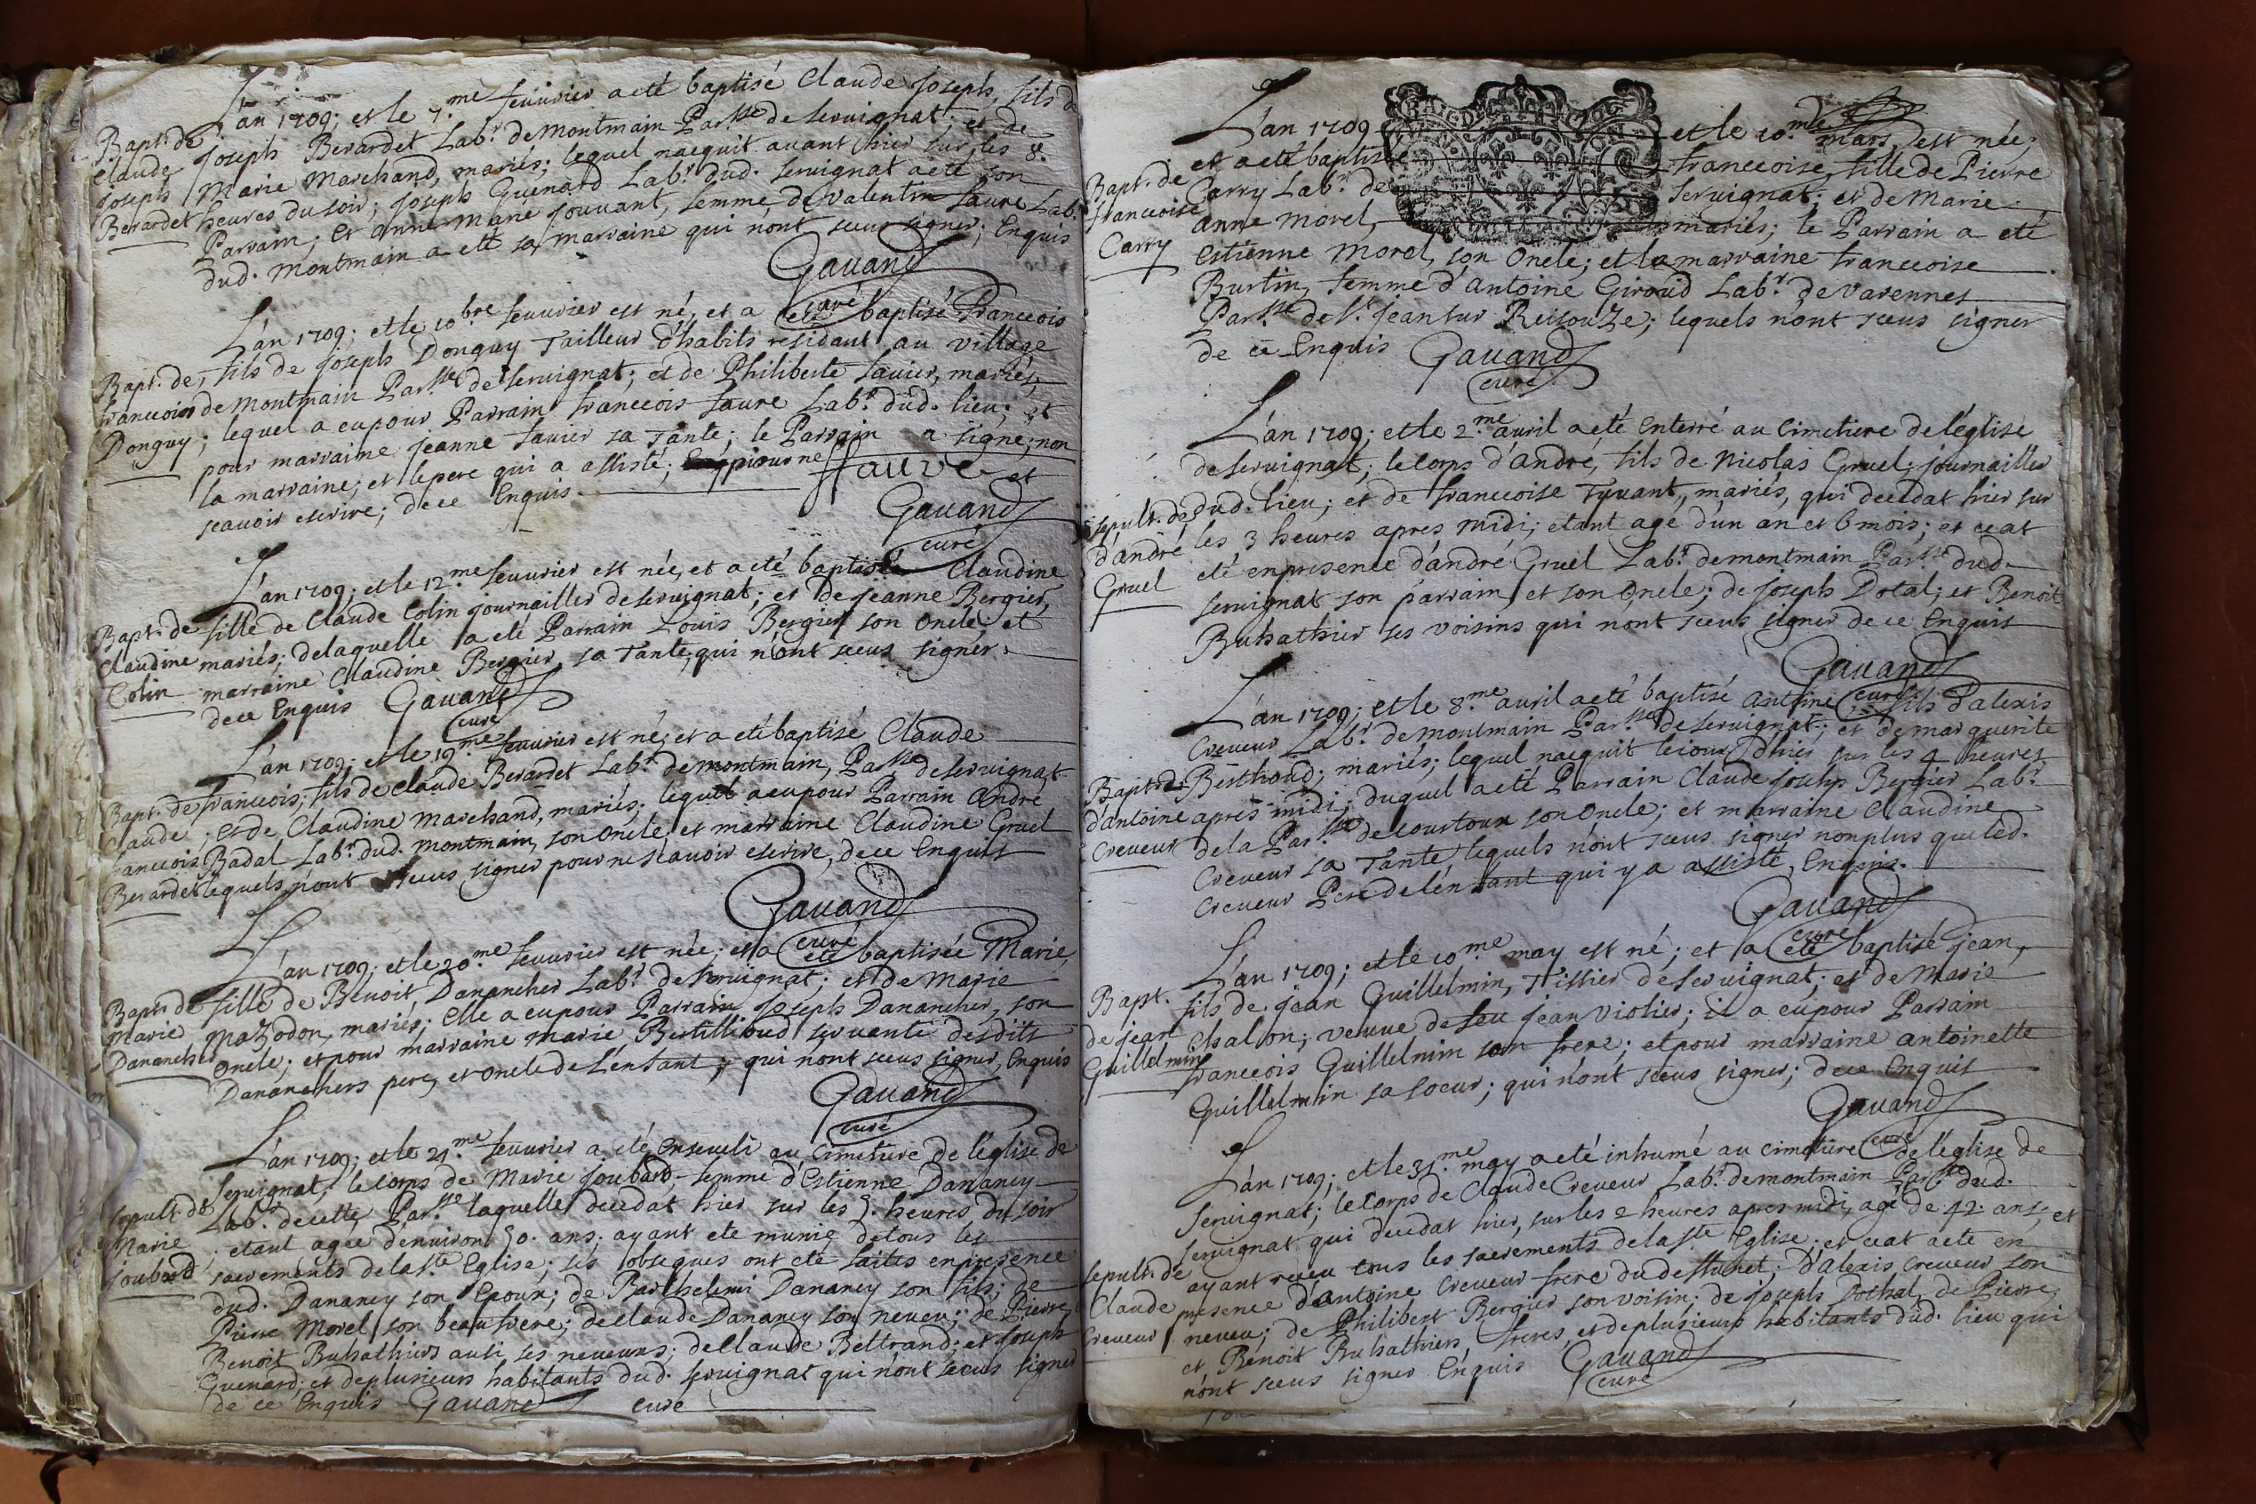 L'an 1709; et le 7.me feuurier a eté baptisé Claude Joseph, fils de
Bapt. de
Claude
Joseph
Berardet
Joseph Berardet Lab.r de Montmain Par.sse de seruignat; et de
Marie Marchand, mariés; lequel nacquit auant hier sur les 8.
heures du soir; Joseph Guenard Lab.r dud. seruignat a eté son
Parrain; et anne Marie Jouuant, femme de Valentin faure Lab.r
dud. Montmain a eté sa marraine qui n'ont sceus signer; Enquis
Gauand
curé
L'an 1709; et le 10.bre feuurier est né, et a eté baptisé francois
Bapt. de
francois
Donguy
fils de Joseph Donguy Tailleur d'habits residant au village
de Montmain Par.sse de seruignat; et de Philiberte fauier, mariés,
lequel a eu pour Parrain francois faure Lab.r dud. lieu; et
pour marraine Jeanne fauier sa Tante; le Parrain a signé, non
la marraine; et le pere qui a assisté; pour ne
scauoir escrire; de ce Enquis.
ffauve et
Gauand
curé
L'an 1709; et le 12.me feuurier est née, et a eté baptisée Claudine
Bapt. de
Claudine
Colin
fille de Claude Colin journaillier de seruignat; et de Jeanne Bergier,
mariés; de laquelle a eté Parrain Louis Bergier son Oncle, et
marraine Claudine Bergier, sa Tante, qui n'ont sceus signer.
de ce Enquis Gauand
curé
L'an 1709; et le 19.me feuurier est né, et a eté baptisé Claude
Bapt. de
Claude
francois
Berardet
francois, fils de Claude Berardet Lab.r de montmain, Par.sse de seruignat
; et de Claudine Marchand, mariés; lequel a eu pour Parrain André
Badal Lab.r dud. Montmain, son Oncle, et marraine Claudine Gruel
lequels n'ont sceus signer pour ne scauoir escrire, de ce Enquis
Gauand
curé
L'an 1709; et le 20.me feuurier est née; et a eté baptisée Marie,
Bapt. de
Marie
Danancher
fille de Benoit Danancher Lab.r de seruignat; et de Marie
Mazodon, mariés; Elle a eu pour Parrain Joseph Danancher, son
Oncle; et pour marraine Marie Bertillioud seruante desdits
Dananchers pere, et Oncle de L'enfant, qui n'ont sceus signer, Enquis
Gauand
curé
L'an 1709; et le 21.me feuurier a eté Enseueli au Cimetiere de l'église de
sepult. de
Marie
Joubard
seruignat, le corps de Marie Joubard femme d'Estienne Danancy
Lab.r de cette Par.sse laquelle deceda hier sur les 5. heures du soir
etant agee d'enuiron 50. ans. ayant eté munie de tous les
sacrements de la s.te Eglise; ses obseques ont eté faites en presence
dud. Danancy son Epoux; de Barthelemi Danancy son fils; de
Pierre Morel son beaufrere; de Claude Danancy son neueu; de Pierre, et
Benoit Buhathiers ausi ses neueurs; de Claude Beltrand; et Joseph
Guenard; et de plusieurs habitants dud. seruignat qui n'ont sceus signer
de ce Enquis Gauand curé
L'an 1709 et le 10.me mars, est née,
Bapt. de
francoise
Carry
et a eté baptisée francoise, fille de Pierre
Carry Lab.r de seruignat; et de Marie
anne Morel, mariés; le Parrain a eté
Estienne Morel, son Oncle; et la marraine francoise
Burtin, femme d'antoine Giroud Lab.r de Varennes
Par.sse de S.t Jean sur Reisouze; lequels n'ont sceus signer
de ce Enquis Gauand
curé
L'an 1709; et le 2.me auril a eté Enterré au Cimetiere de l'église
sepult. de
d'andré
Gruel
de seruignat; le corps d'andré, fils de Nicolas Gruel, journaillier
dud. lieu; et de francoise Tyuant, mariés, qui decedat hier sur
les 3 heures apres midi; etant agé d'un an et 6 mois; et ce at
eté en presence d'andré Gruel Lab.r de montmain Par.sse dud.
seruignat son parrain, et son Oncle; de Joseph Dotal; et Benoit
Buhathier ses voisins qui n'ont sceus signer de ce Enquis
Gauand
curé
L'an 1709; et le 8.me auril a eté baptisé antoine, fils d'alexis
Bapt. de
d'antoine
Creueur
Creueur Lab.r de montmain Par.sse de seruignat; et de marguerite
Berthoud; mariés; lequel nacquit le jour d'hier sur les 4 heures
apres midi; duquel a eté Parrain Claude Joseph Bergier Lab.r
de la Par.sse de courtoux son Oncle; et marraine Claudine
Creueur sa Tante lequels n'ont sceus signer non plus que led.
Creueur Pere de l'enfant qui y a assisté, Enquis.
Gauand
curé
L'an 1709; et le 10.me may est né; et a eté baptisé jean,
Bapt.
de jean
Guillelmin
fils de jean Guillelmin, Tissier de seruignat; et de Marie
Chalon; veuue de feu jean Violier; il a eu pour Parrain
francois Guillelmin son frere; et pour marraine antoinette
Guillelmin sa soeur; qui n'ont sceus signer; de ce Enquis
Gauand
curé
L'an 1709; et le 31.me may a eté inhumé au cimetiere de l'église de
sepult. de
Claude
Creueur
seruignat; le corps de Claude Creueur Lab.r de montmain Par.sse dud.
seruignat qui decedat hier, sur les 2 heures apres midi, agé de 42. ans, et
ayant receu tous les sacrements de la s.te Eglise; et ce at eté en
presence d'antoine Creueur frere du deffunct; d'alexis Creueur son
neueu; de Philibert Bergier son voisin; de joseph Dothal, de Pierre,
et Benoit Buhathiers, freres, et de plusieurs habitants dud. lieu qui
n'ont sceus signer Enquis Gauand
curé